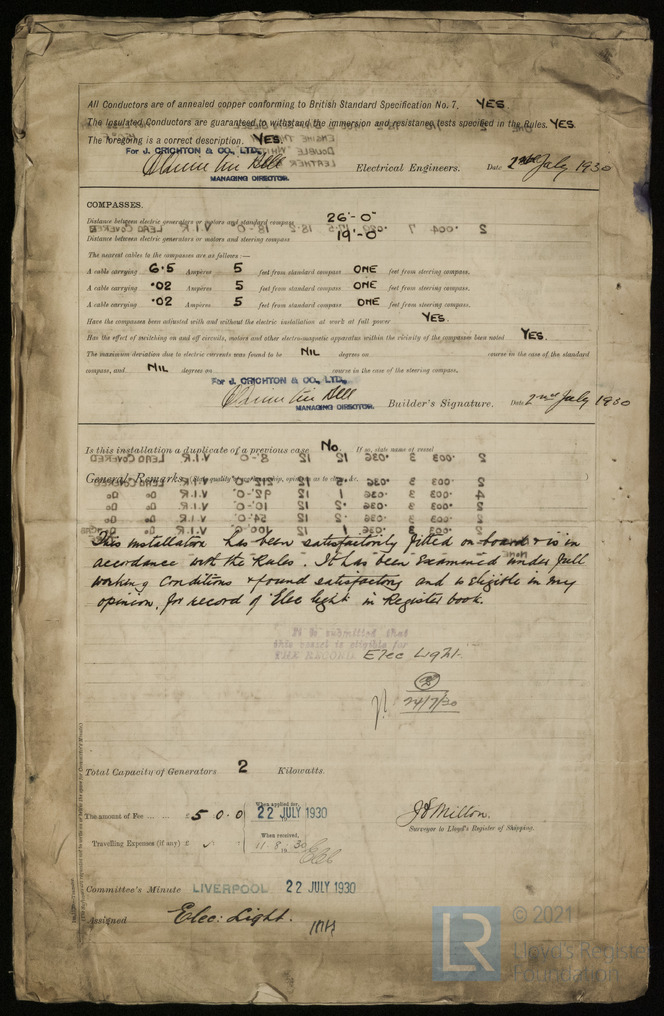 All Conductors are of annealed copper conforming to British Standard Specification No. 7. YES
The Insulated Conductors are guaranteed to withstand the immersion and resistance tests specified in the Rules. YES.
The foregoing is a correct description. YES.
For J. CRICHTON & CO., LTD.,
Electrical Engineers. Date 2nd July 1930
MANAGING DIRECTOR.
COMPASSES.
Distance between electric generators or motors and standard compass 26'-0"
Distance between electric generators or motors and steering compass 19'-0"
The nearest cables to the compasses are as follows:—
A cable carrying 6.5 Ampères 5 feet from standard compass ONE feet from steering compass.
A cable carrying .02 Ampères 5 feet from standard compass ONE feet from steering compass.
A cable carrying .02 Ampères 5 feet from standard compass ONE feet from steering compass.
Have the compasses been adjusted with and without the electric installation at work at full power YES.
Has the effect of switching on and off circuits, motors and other electro-magnetic apparatus within the vicinity of the compasses been noted YES.
The maximum deviation due to electric currents was found to be NIL degrees on course in the case of the standard
compass, and NIL degrees on course in the case of the steering compass.
For J. CRICHTON & CO., LTD.,
Builder's Signature. Date 2nd July 1930
MANAGING DIRECTOR.
Is this installation a duplicate of a previous case No. If so, state name of vessel
General Remarks (State quality of workmanship, opinions as to class, &c.
This installation has been satisfactorily fitted on board & is in
accordance with the Rules. It has been examined under full
working conditions & found satisfactory and is eligible in my
opinion, for record of Elec light in Register book.
It is submitted that
this vessel is eligible for
THE RECORD. Elec Light.
24/7/30
Total Capacity of Generators 2 Kilowatts.
The amount of Fee ... £ 5 0 . 0 When applied for, 22 JULY 1930
J D Milton.
Surveyor to Lloyd's Register of Shipping.
Travelling Expenses (if any) £ When received, 11.8.1930
Committee's Minute LIVERPOOL 22 JULY 1930
Assigned Elec: Light.
LR © 2021
Lloyd's Register
Foundation